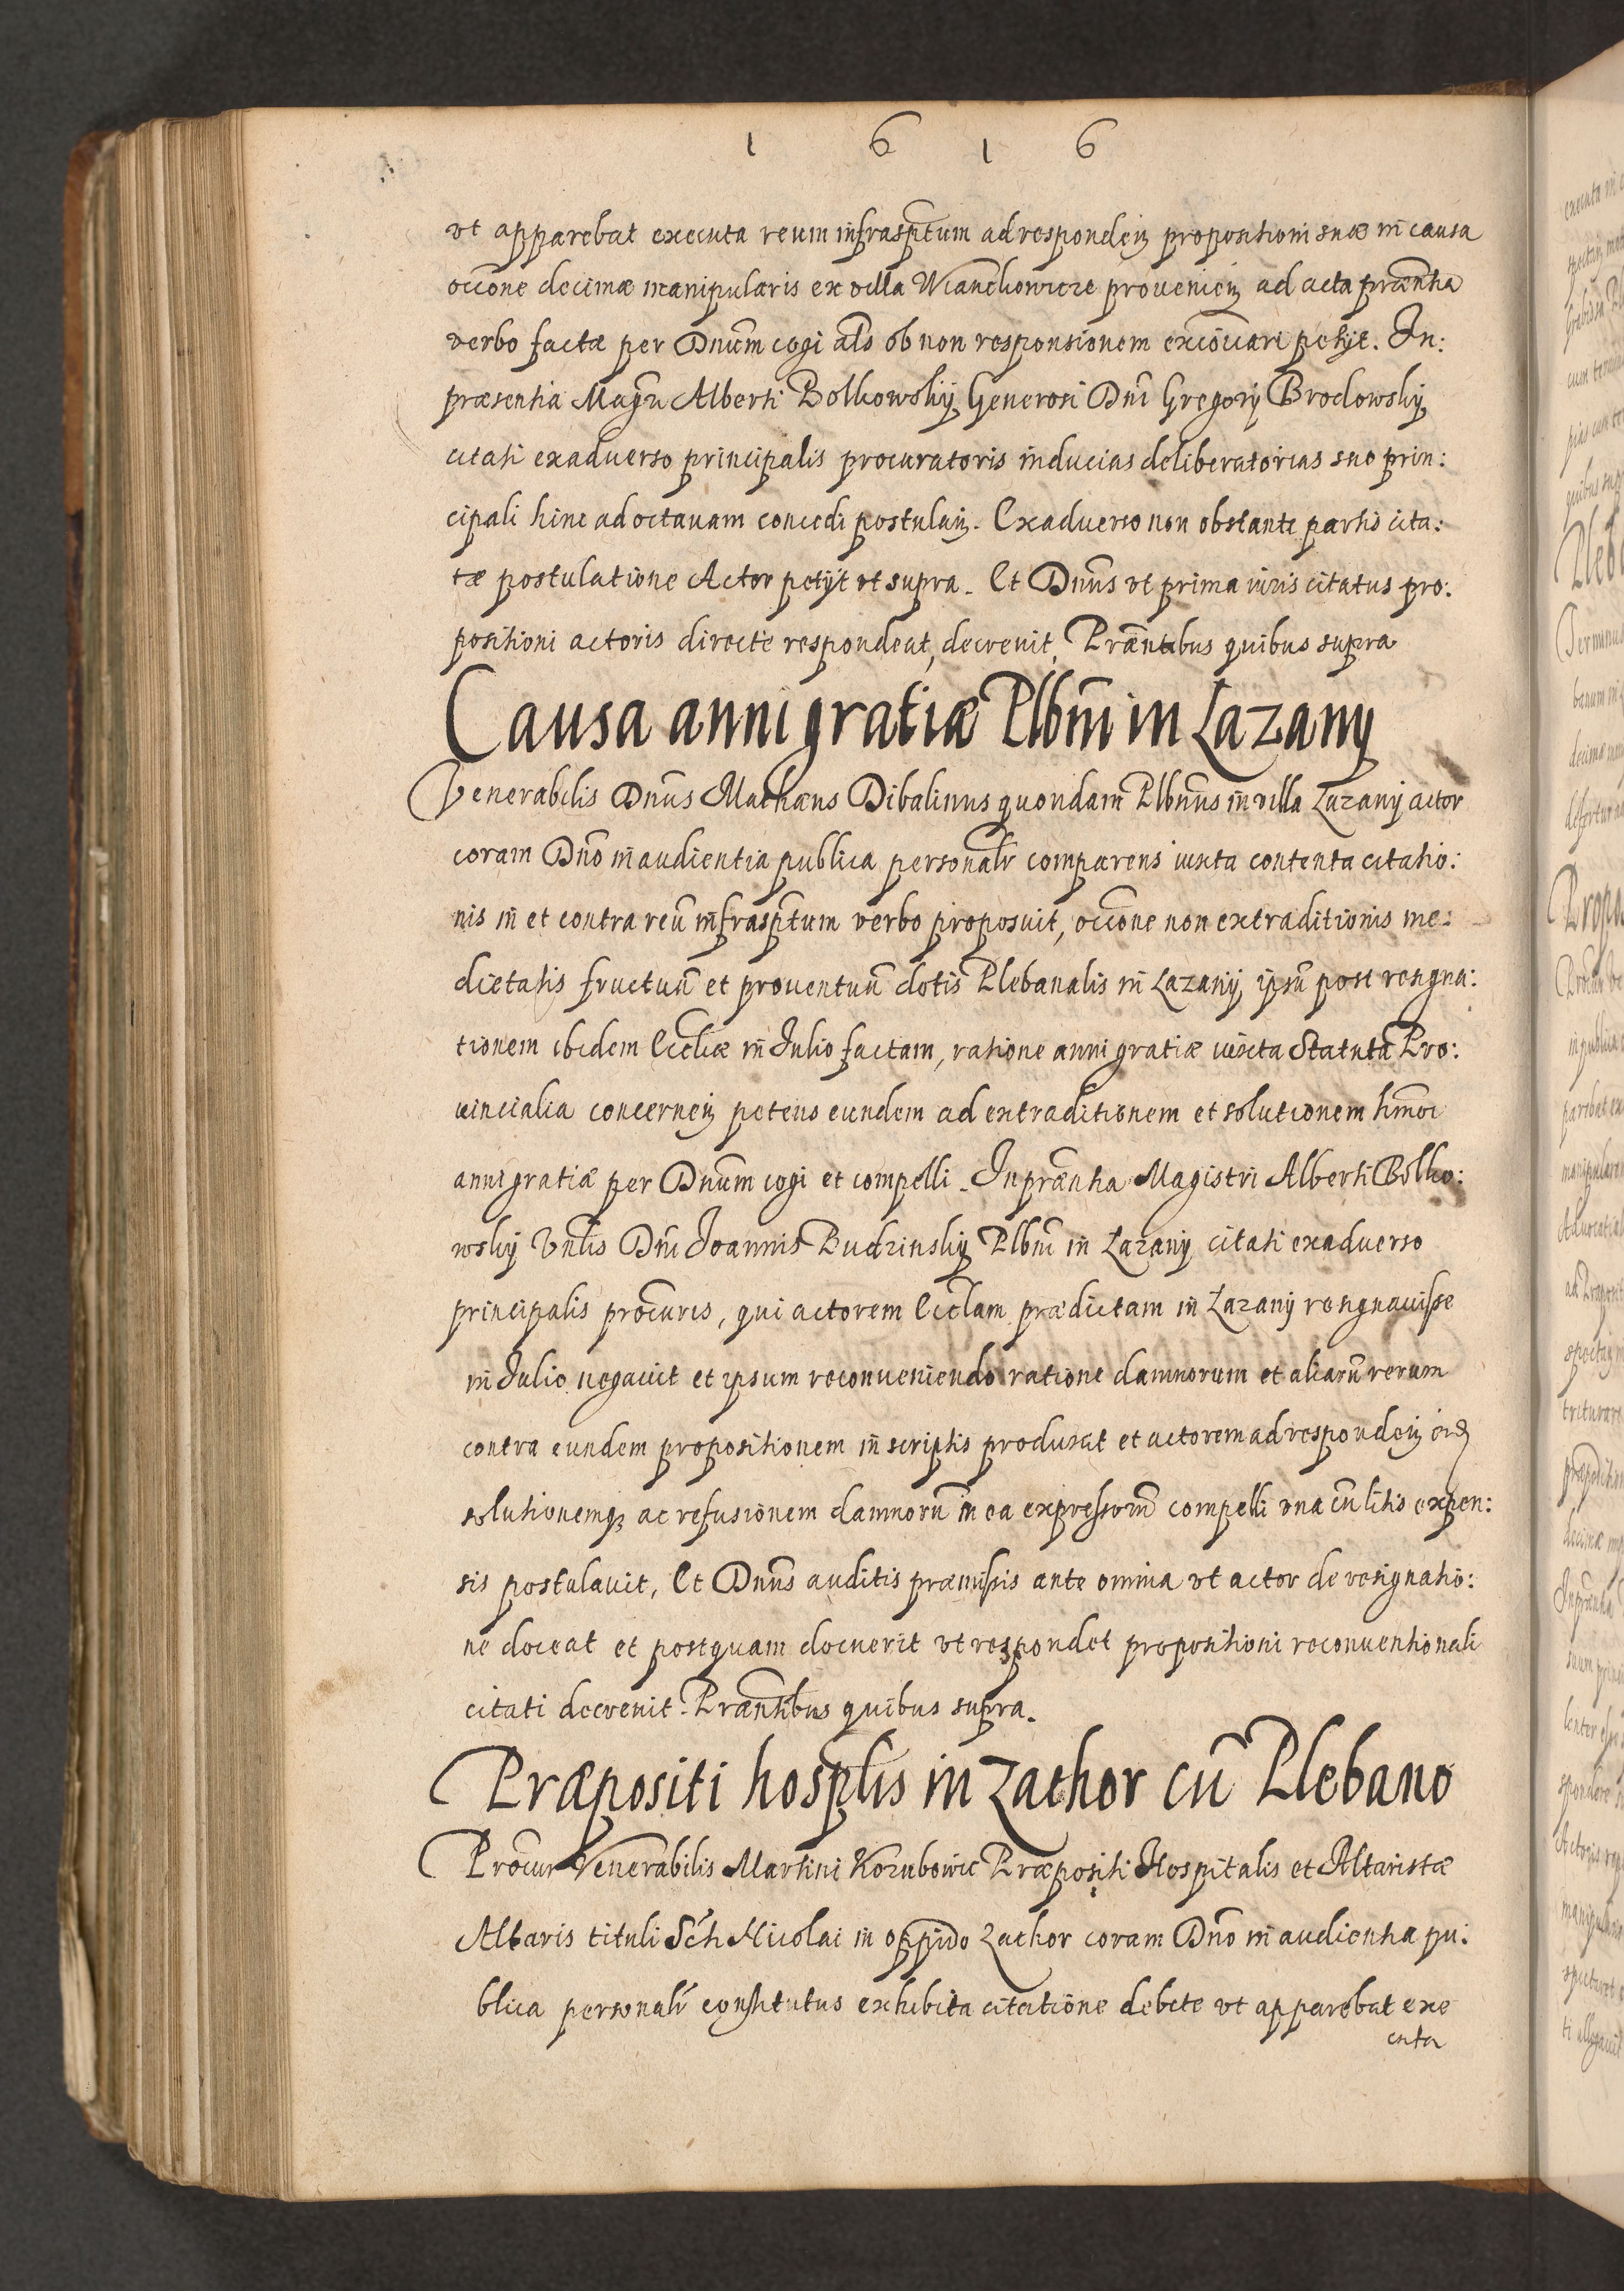 1 6 1 6
vt apparebat executa reum infrascptum ad respondeñ propositioni suæ in causa
occõne decimæ manipularis ex villa Wianckowicze provenieñ ad acta præntia
verbo factæ per Dnum cogi als ob non responsionem excõicari petijt. In:
præsentia Magri Alberti Bolkowskÿ Generosi Dni Gregorij Brodowskÿ
citati ex adverso principalis procuratoris inducias deliberatorias suo prin:
cipali hinc ad octavam concedi postulañ. Ex adverso non obstante partis cita:
tæ postulatione Actor petijt vt supra. Et Dnus vt prima iuris citatus pro:
positioni actoris directe respondeat, decrevit, Præntibus quibus supra
Causa anni gratiæ Plbni in Lazanÿ
Venerabilis Dnus Mathæus Dibalinus quondam Plbnus in villa Lazanÿ actor
coram Dno in audientia publica personalr comparens iuxta contenta citatio:
nis in et contra reū infrascptum verbo proposuit, occõne non extraditionis me:
dietatis fructuū et proventuū dotis Plebanalis in Lazanÿ, ipsū post resigna:
tionem ibidem Eccliæ in Julio factam, ratione anni gratiæ iuxta Statuta Pro:
vincialia concerneñ petens eundem ad extraditionem et solutionem hmõi
anni gratiæ per Dnum cogi et compelli. In præntia Magistri Alberti Bolko:
wskÿ Vnlis Dni Joannis Budzinskÿ Plbni in Lazanÿ citati ex adverso
principalis procuris, qui actorem Ecclam prædictam in Lazanÿ resignavisse
in Julio negavit et ipsum reconveniendo ratione damnorum et aliarū rerum
contra eundem propositionem in scriptis produxit et actorem ad respondeñ ei
solutionemq; ac refusionem damnorū in ea expressorū compelli vna cū litis expen:
sis postulavit, Et Dnus auditis præmissis ante omnia vt actor de resignatio:
ne doceat et postquam docuerit vt respondet propositioni reconventionali
citati decrevit. Præntibus quibus supra.
Præpositi hosplis in Zathor cū Plebano
Procur Venerabilis Martini Kozubowic Præpositi Hospitalis et Altaristæ
Altaris tituli Scti Nicolai in oppido Zathor coram Dno in audientia pu:
blica personalr constitutus exhibita citatione debite vt apparebat exe
cuta